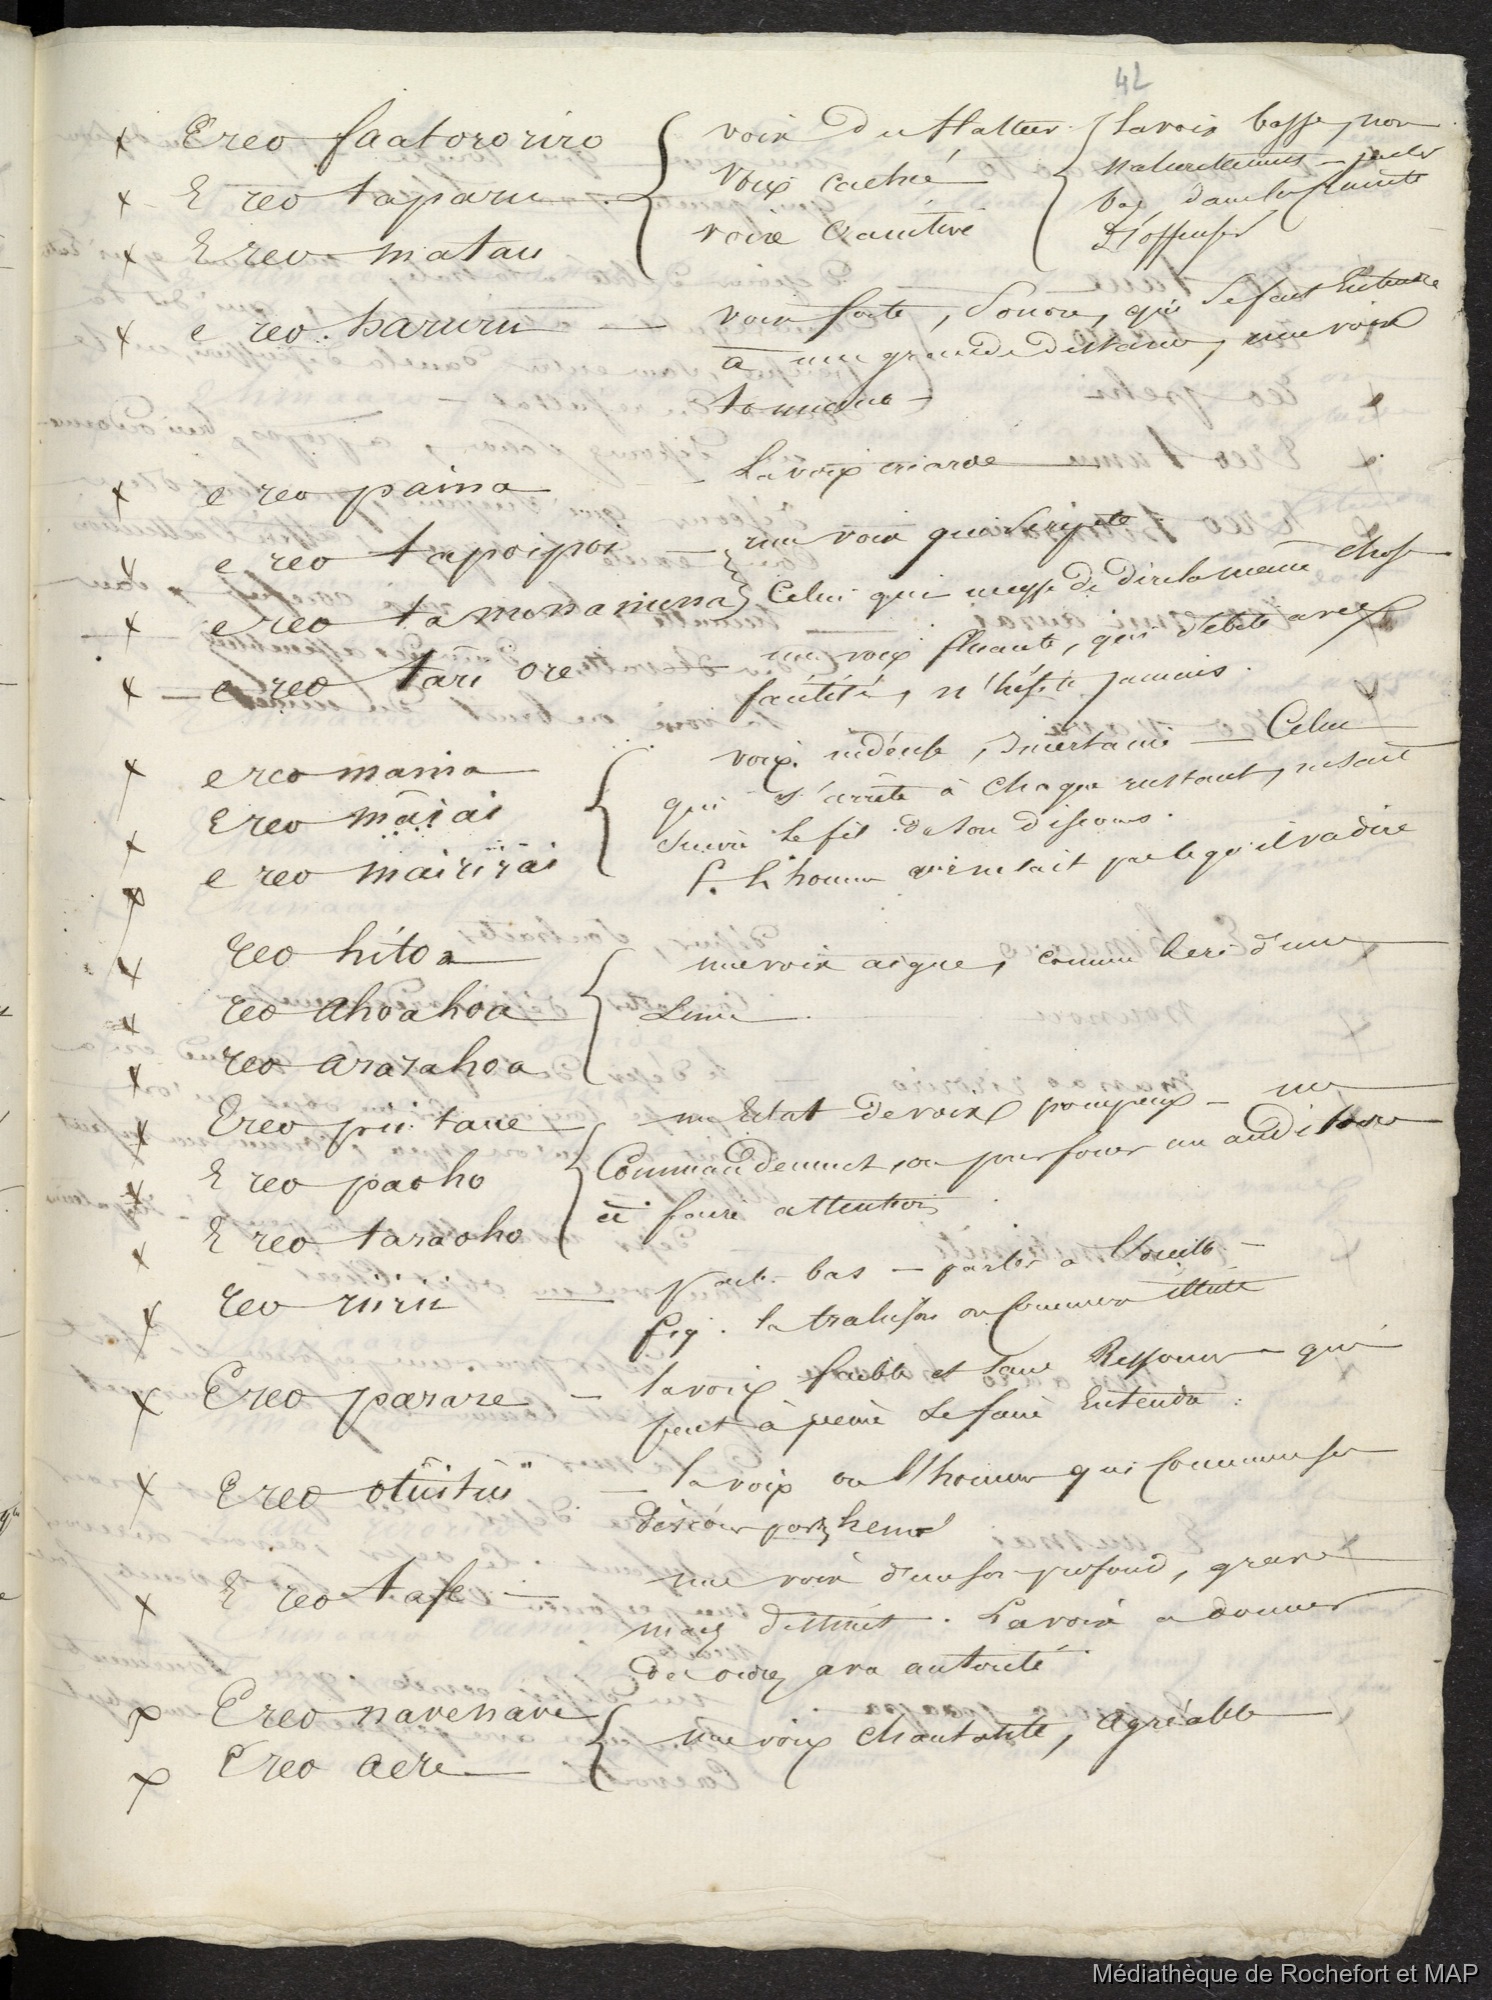 42
E reo faatororiro
E reo taparu
E reo matau
voix Du flatteur
voix cachée
voix craintive
La voix basse, non
naturellement — parler
bas dans la crainte
D'offenser
e reo haruru — voix forte, Sonore, qui Se fait Entendre
à une grande distance, une voix
tonnante
e reo paina — La voix criarde
e reo tapoipoi — une voix qui Se répète
e reo tamonamona Celui qui ne cesse De dire la meme chose
e reo tari ore — une voix fluante, qui débite avec
facilité, n'hésite jamais.
e reo mania
E reo maiai
e reo mairirai
voix indécise, Incertaine — Celui
qui s'arrête à Chaque instant, ne sait
Suivre le fil de Son Discours.
L'homme qui ne sait pas ce qu'il va dire
reo hitoa
reo ahoahoa
reo ararahoa
une voix aigue, comme le cri d'une
Lime
E reo pii taue
E reo paoho
E reo taraoho
un Eclat de voix pompeux — un
Commandement, ou pour forcer un auditoire
à faire attention
reo iriirii — parler bas — parler à l'oreille —
fig. la trahison ou Commerce illicite
E reo parare — la voix faible et Sans Ressource — qui
peut à peine Se faire Entendre.
E reo otuitui — la voix ou l'homme qui Commence Son
discours par hem
E reo tafe — une voix d'un Son profond, grave
mais distinct. La voix a donner
des ordres avec autorité
E reo navenave
E reo aere
une voix chantante, agréable
Médiathèque de Rochefort et MAP